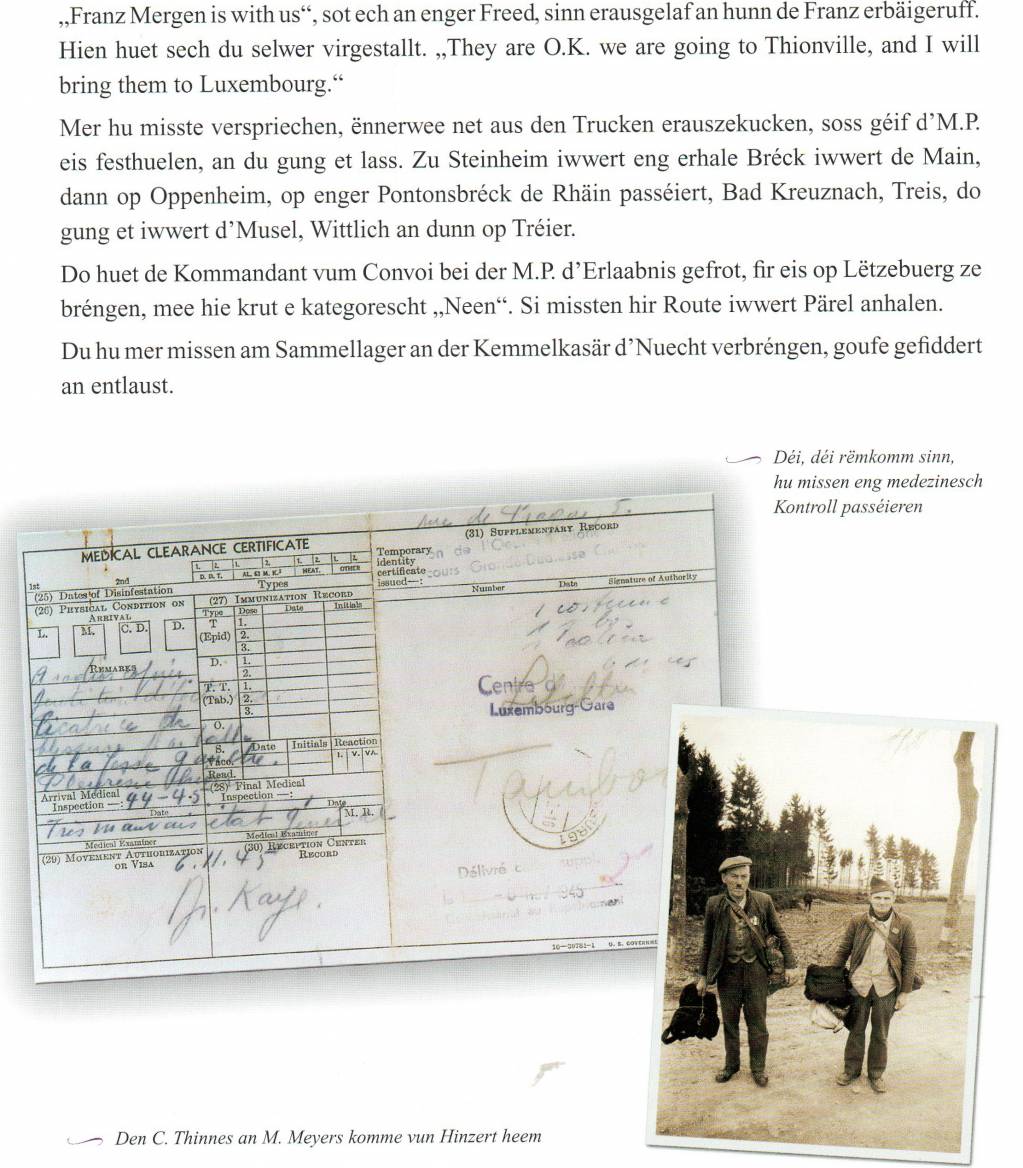 „Franz Mergen is with us“, sot ech an enger Freed, sinn erausgelaf an hunn de Franz erbäigeruff.
Hien huet sech du selwer virgestallt. „They are O.K. we are going to Thionville, and I will
bring them to Luxembourg.“
Mer hu misste verspriechen, ënnerwee net aus den Trucken erauszekucken, soss géif d’M.P.
eis festhuelen, an du gung et lass. Zu Steinheim iwwert eng erhale Bréck iwwert de Main,
dann op Oppenheim, op enger Pontonsbréck de Rhäin passéiert, Bad Kreuznach, Treis, do
gung et iwwert d’Musel, Wittlich an dunn op Tréier.
Do huet de Kommandant vum Convoi bei der M.P. d’Erlaabnis gefrot, fir eis op Lëtzebuerg ze
bréngen, mee hie krut e kategorescht „Neen“. Si missten hir Route iwwert Pärel anhalen.
Du hu mer missen am Sammellager an der Kemmelkasär d’Nuecht verbréngen, goufe gefiddert
an entlaust.
Déi, déi rëmkomm sinn,
hu missen eng medezinesch
Kontroll passéieren
MEDICAL CLEARANCE CERTIFICATE
1. 2. 1. 2. 1. 2. 1. 2.
D. D. T. AL. 63 M. K.³ NEAT. OTHER
1st 2nd
(25) Dates of Disinfestation Types
(26) PHYSICAL CONDITION ON
ARRIVAL
L. M. C. D. D.
REMARKS
Cicatrice de
de la fesse gauche.
Arrival Medical
Inspection —: 44-45
Date
Très mauvais état général
Medical Examiner
(27) IMMUNIZATION RECORD
Type Dose Date Initials
T
(Epid)
1.
2.
3.
D. 1.
2.
T. T.
(Tab.)
1.
2.
3.
O.
S. Date Initials Reaction
Vacc. I. V. VA.
Read.
(28) Final Medical
Inspection —:
Date
M. R.
Medical Examiner
(29) MOVEMENT AUTHORIZATION
OR VISA
(30) RECEPTION CENTER
RECORD
6.11.45
Dr. Kaye.
rue de Prague, 5.
(31) SUPPLEMENTARY RECORD
Temporary
identity
certificate
issued—:
Number Date Signature of Authority
1 costume
Centre d
Luxembourg-Gare
Délivré
1945
16—39781-1 U. S. GOVERNM
Den C. Thinnes an M. Meyers komme vun Hinzert heem